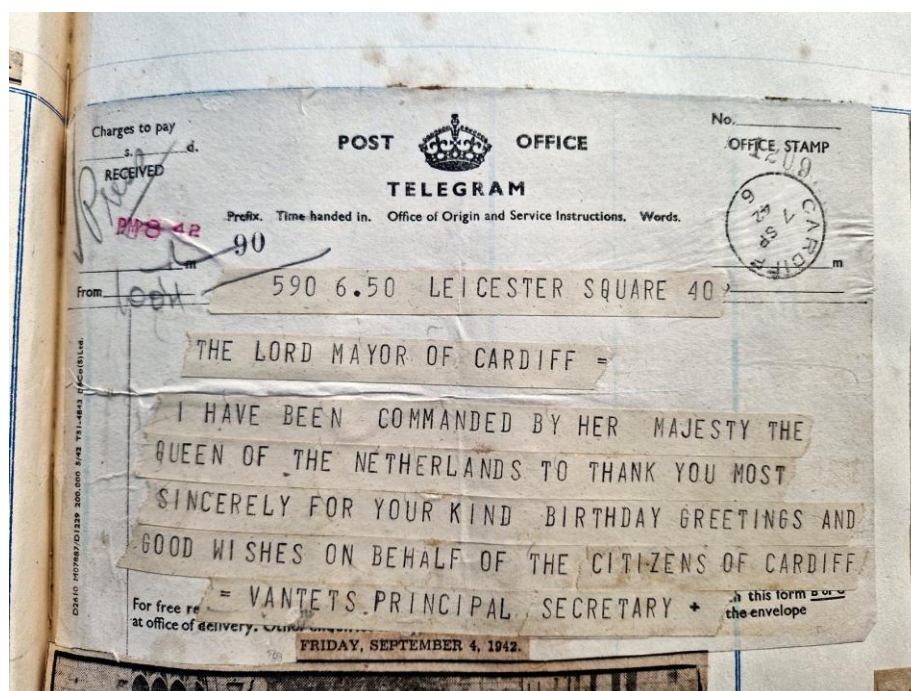 Charges to pay
s. d.
RECEIVED
POST OFFICE
TELEGRAM
Prefix. Time handed in. Office of Origin and Service Instructions. Words.
No.
OFFICE STAMP
1209
CARDIFF
7 SP
42
42
90
m
From
m
590 6.50 LEICESTER SQUARE 40
THE LORD MAYOR OF CARDIFF =
I HAVE BEEN COMMANDED BY HER MAJESTY THE
QUEEN OF THE NETHERLANDS TO THANK YOU MOST
SINCERELY FOR YOUR KIND BIRTHDAY GREETINGS AND
GOOD WISHES ON BEHALF OF THE CITIZENS OF CARDIFF
= VANTETS PRINCIPAL SECRETARY +
For free re
this form
at office of delivery.
the envelope
FRIDAY, SEPTEMBER 4, 1942.